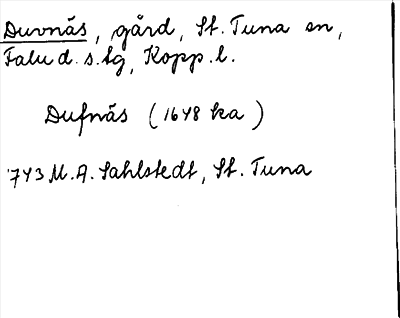 Duvnäs, gård, St. Tuna sn,
Falu d. s. tg, Kopp. l.
Dufnäs (1648 ka)
743 M. A. Sahlstedt, St. Tuna